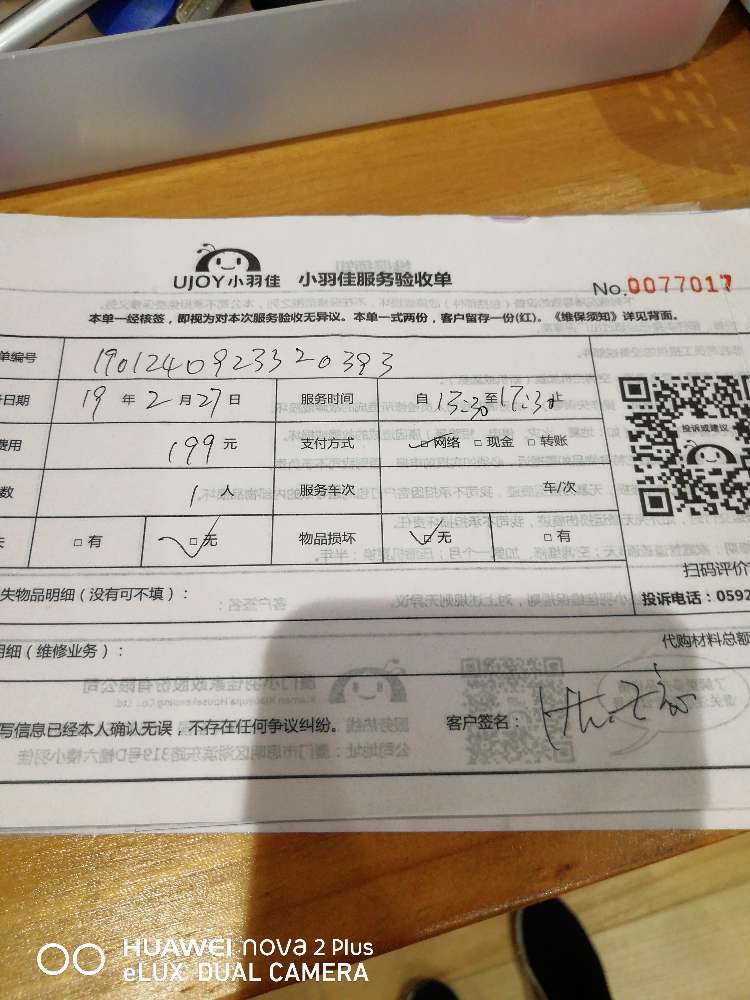 UJOY小羽佳 小羽佳服务验收单
No.0077017
本单一经核签，即视为对本次服务验收无异议。本单一式两份，客户留存一份(红)。《维保须知》详见背面。
单编号 1901240923320393
日期 19 年 2 月 27 日 服务时间 自 13:30 至 17:30 止
费用 199 元 支付方式 网络 现金 转账
数 1 人 服务车次 车/次
有 无 物品损坏 无 有
投诉或建议
扫码评价
失物品明细（没有可不填）：
投诉电话：0592
明细（维修业务）：
代购材料总额
写信息已经本人确认无误，不存在任何争议纠纷。 客户签名：
HUAWEI nova 2 Plus
eLUX DUAL CAMERA